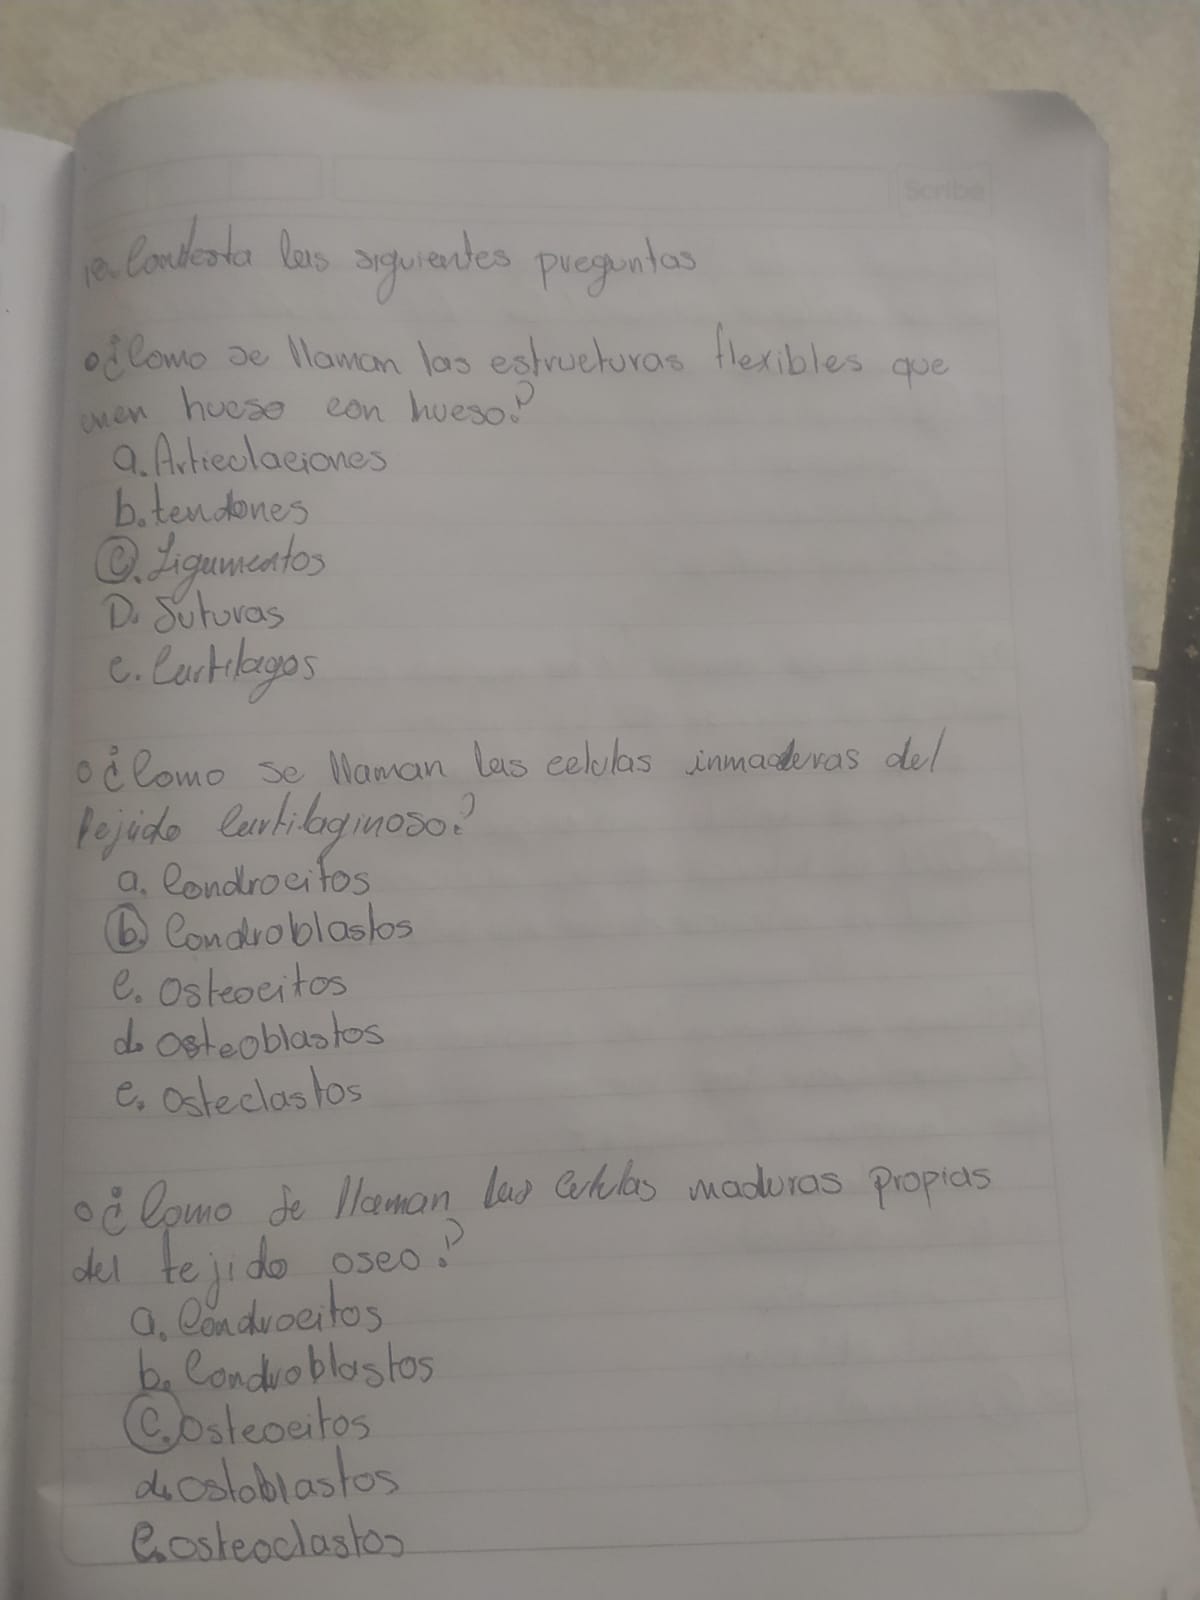 Scribe
10. Contesta las siguientes preguntas
o¿Como se llaman las estructuras flexibles que
unen hueso con hueso?
a. Articulaciones
b. tendones
c. Ligamentos
D. Suturas
e. Cartilagos
o¿Como se llaman las celulas inmaduras del
tejido Cartilaginoso?
a. Condrocitos
b. Condroblastos
c. Osteocitos
d. osteoblastos
e. osteclastos
o¿Como se llaman las celulas maduras propias
del tejido oseo?
a. Condrocitos
b. Condroblastos
c. Osteocitos
d. ostoblastos
e. osteoclastos